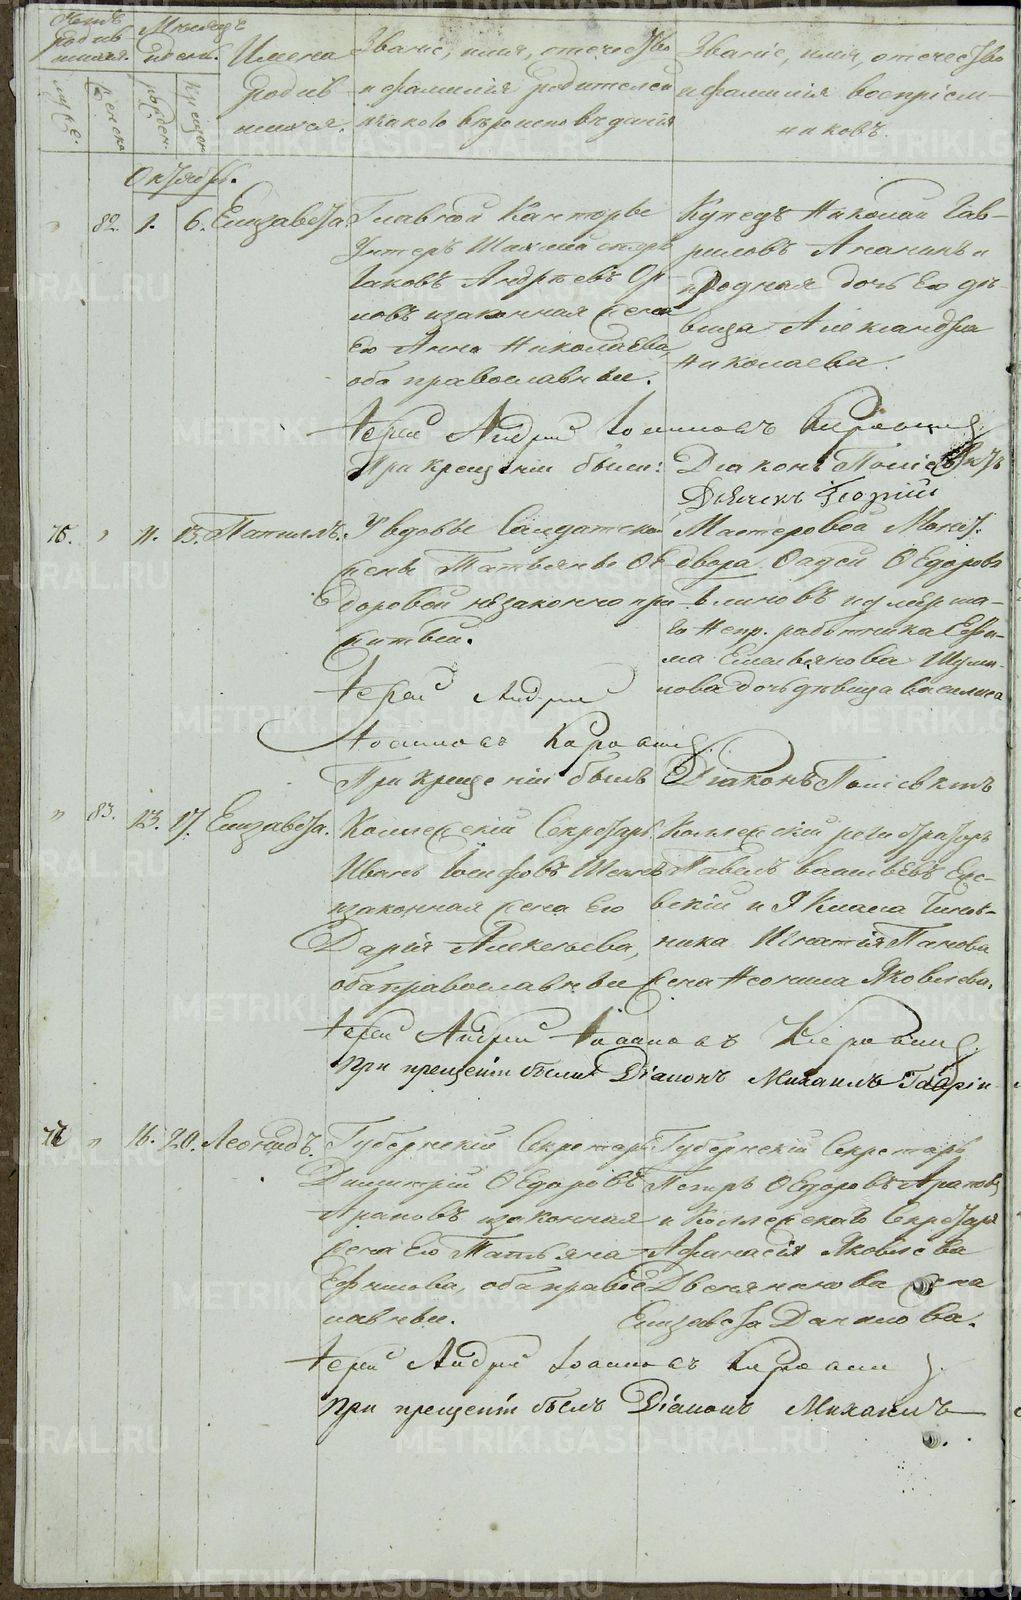 Счетъ родив шихся.
Мѣсяцъ и день.
Имена родив шихся.
Званіе, имя, отечество и фамилія родителей и каково вѣроисповѣданія
Званіе, имя, отечество и фамилія воспріем- никовъ.
муж.
женска
рожден.
крещен.
Октябрь.
" 82. 1. 6. Елизавета.
Главной Конторы
Унтеръ Шихмейстеръ
Іаковъ Андреевъ Ор
ловъ и законная жена
Его Анна Николаева
оба православные.
Купецъ Николай Гав-
риловъ Ананьинъ и
родная дочь Его дѣ-
вица Александра
Николаева.
Іерей Андрей Іоанновъ
При крещеніи были: Діаконъ
Дьячекъ Георгій
75. " 11. 13.
У вдовы Солдатской
жены Татьяны Ѳе
доровой незаконно при
житый.
Мастеровой Монет.
двора Фадей Ѳедоровъ
Блиновъ и умерша-
го Непр. работника Ефи-
ма Емельянова Шуми-
лова дочь дѣвица Василиса
Іерей Андрей
Іоанновъ
При крещеніи былъ Діаконъ
" 83. 13. 17. Елизавета.
Коллежскій Секретарь
Иванъ Іосифовъ
и законная жена Его
Дарія Алексѣева,
оба православные
Коллежскій регистраторъ
Павелъ Васильевъ
и 9 Класса Чинов-
ника Игнатія Панова
жена Неонила Яковлева.
Іерей Андрей Іоанновъ
При крещеніи былъ Діаконъ Михаилъ
76 " 16. 20. Леонидъ.
Губернскій Секретарь
Димитрій Ѳедоровъ
Араповъ и законная
жена Его Татьяна
Ефимова, оба право
славные.
Губернскій Секретарь
Петръ Ѳедоровъ Араповъ
и Коллежскаго Секретаря
Афанасія Яковлева
жена
Елизавета Данилова.
Іерей Андрей Іоанновъ
При крещеніи былъ Діаконъ Михаилъ
METRIKI.GASO-URAL.RU